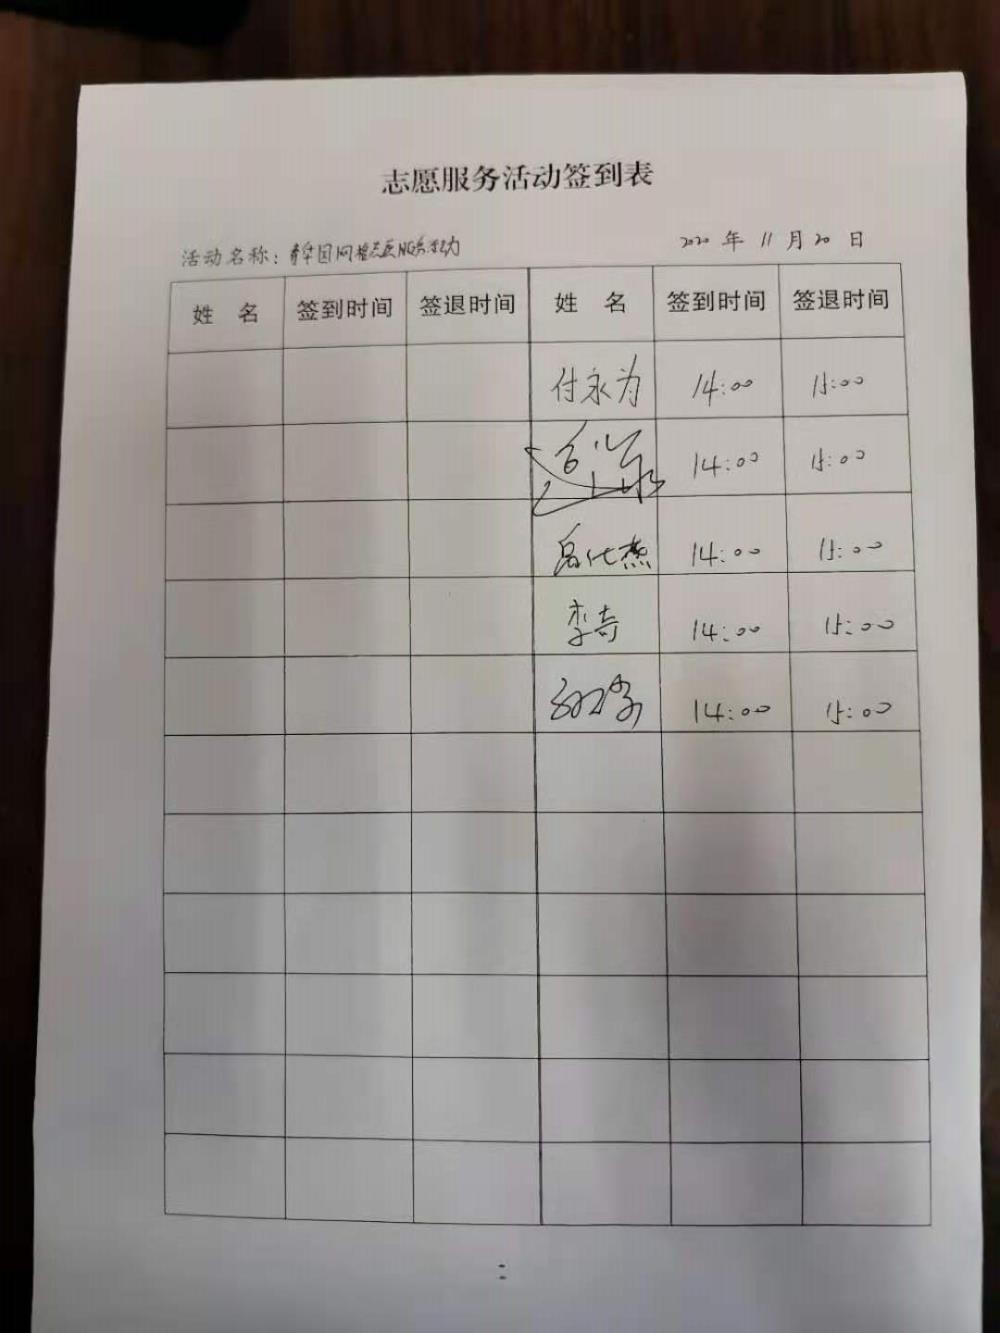 志愿服务活动签到表
活动名称：青年园网格志愿服务活动
2020 年 11 月 20 日
姓 名 签到时间 签退时间 姓 名 签到时间 签退时间
付永为 14:00 15:00
14:00 15:00
14:00 15:00
李奇 14:00 15:00
14:00 15:00